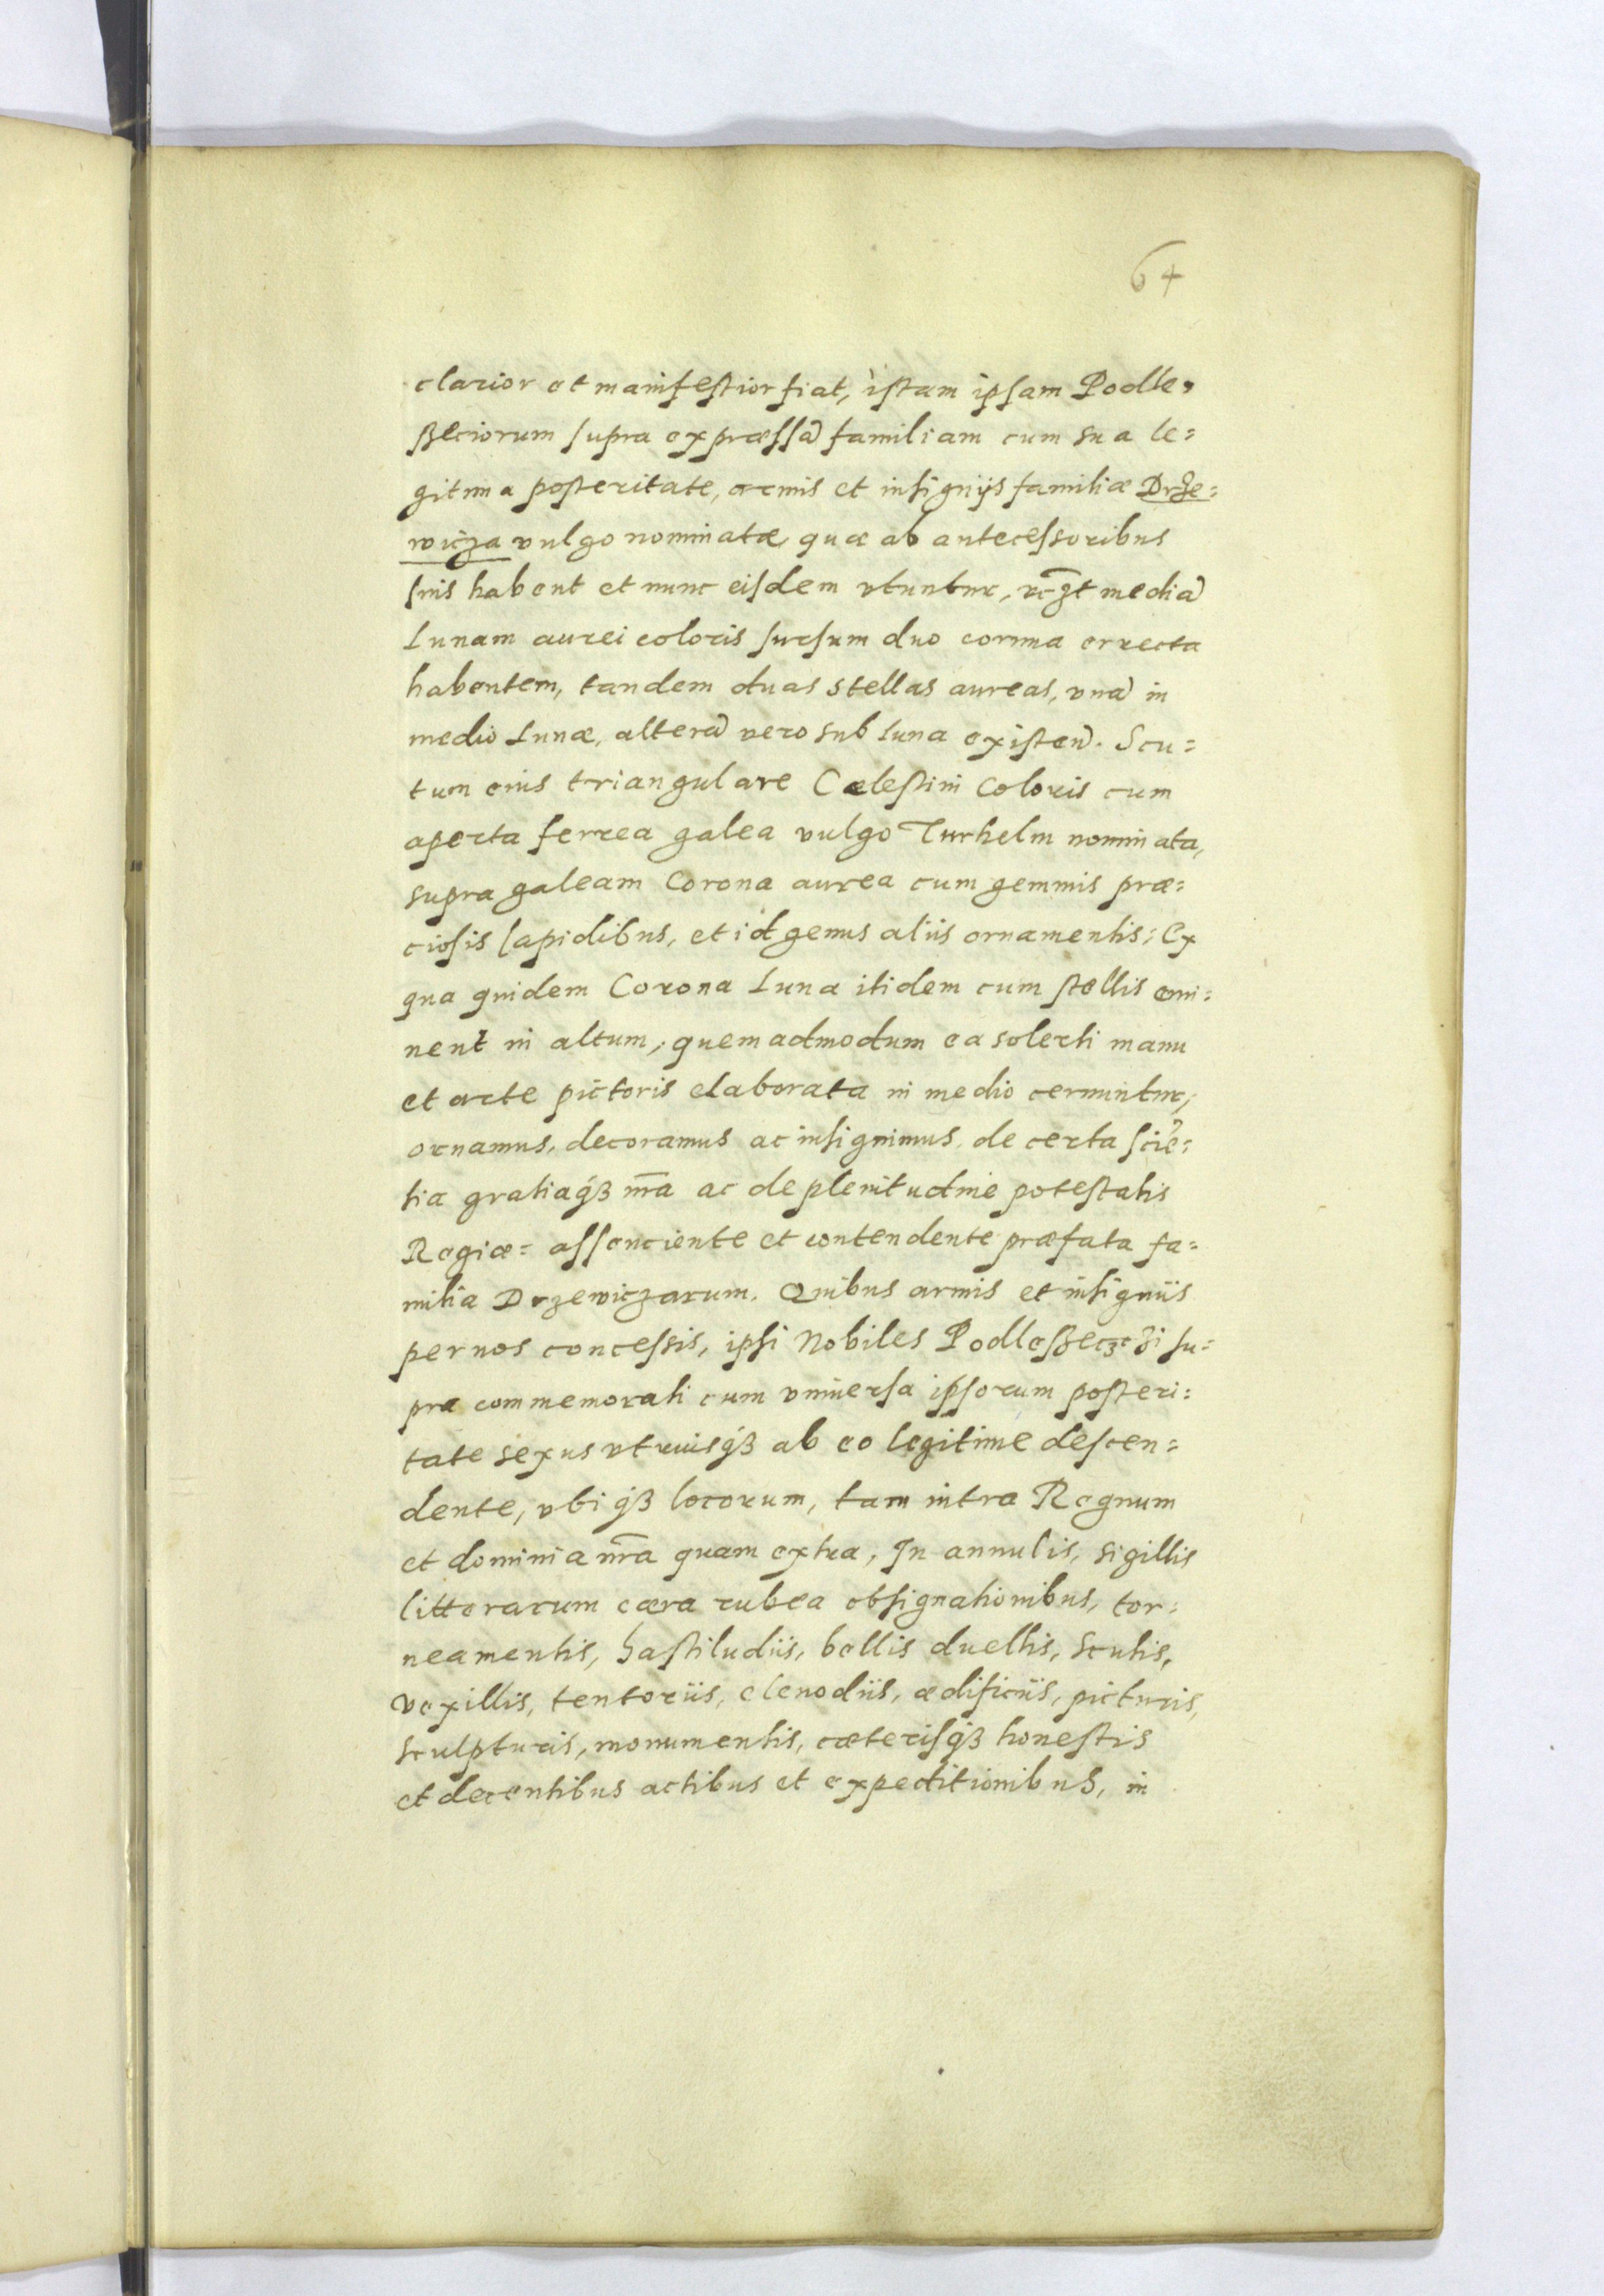 64
clarior et manifestior fiat, istam ipsam Podle=
ßeciorum supra expræssã familiam cum sua le=
gitima posteritate, armis et insignijs familiæ Drze=
wicza vulgo nominatæ, quæ ab antecessoribus
suis habent et nunc eisdem vtuntur, mediã
Lunam aurei coloris sursum duo cornua errecta
habentem, tandem duas stellas aureas, vnã in
medio Lunæ, alterã vero sub luna existeñ. Scu=
tum eius triangulare Cælestini Coloris cum
aperta ferrea galea vulgo Turhelm nominata,
supra galeam Corona aurea cum gemmis præ=
ciosis lapidibus, et id genus aliis ornamentis; Ex
qua quidem Corona Luna itidem cum stellis emi=
nent in altum, quemadmodum ea solerti manu
et arte pictoris elaborata in medio cernuntur,
ornamus, decoramus ac insignimus, de certa sciẽ=
tia gratiaqꝫ nr̃a ac de plenitudine potestatis
Regiæ= assenciente et contendente præfata fa=
milia Drzewiczarum. Quibus armis et insigniis
per nos concessis, ipsi Nobiles Podleßeczczi su=
pra commemorati cum vniuersa ipsorum posteri=
tate sexus vtriusqꝫ ab eo legitime descen=
dente, vbiqꝫ locorum, tam intra Regnum
et dominia nr̃a quam extra, In annulis, sigillis
litterarum cæra rubea obsignationibus, tor=
neamentis, hastiludiis, bellis duellis, scutis,
vexillis, tentoriis, clenodiis, ædificiis, picturis,
sculpturis, monumentis, cæterisqꝫ honestis
et decentibus actibus et expeditionibus, in